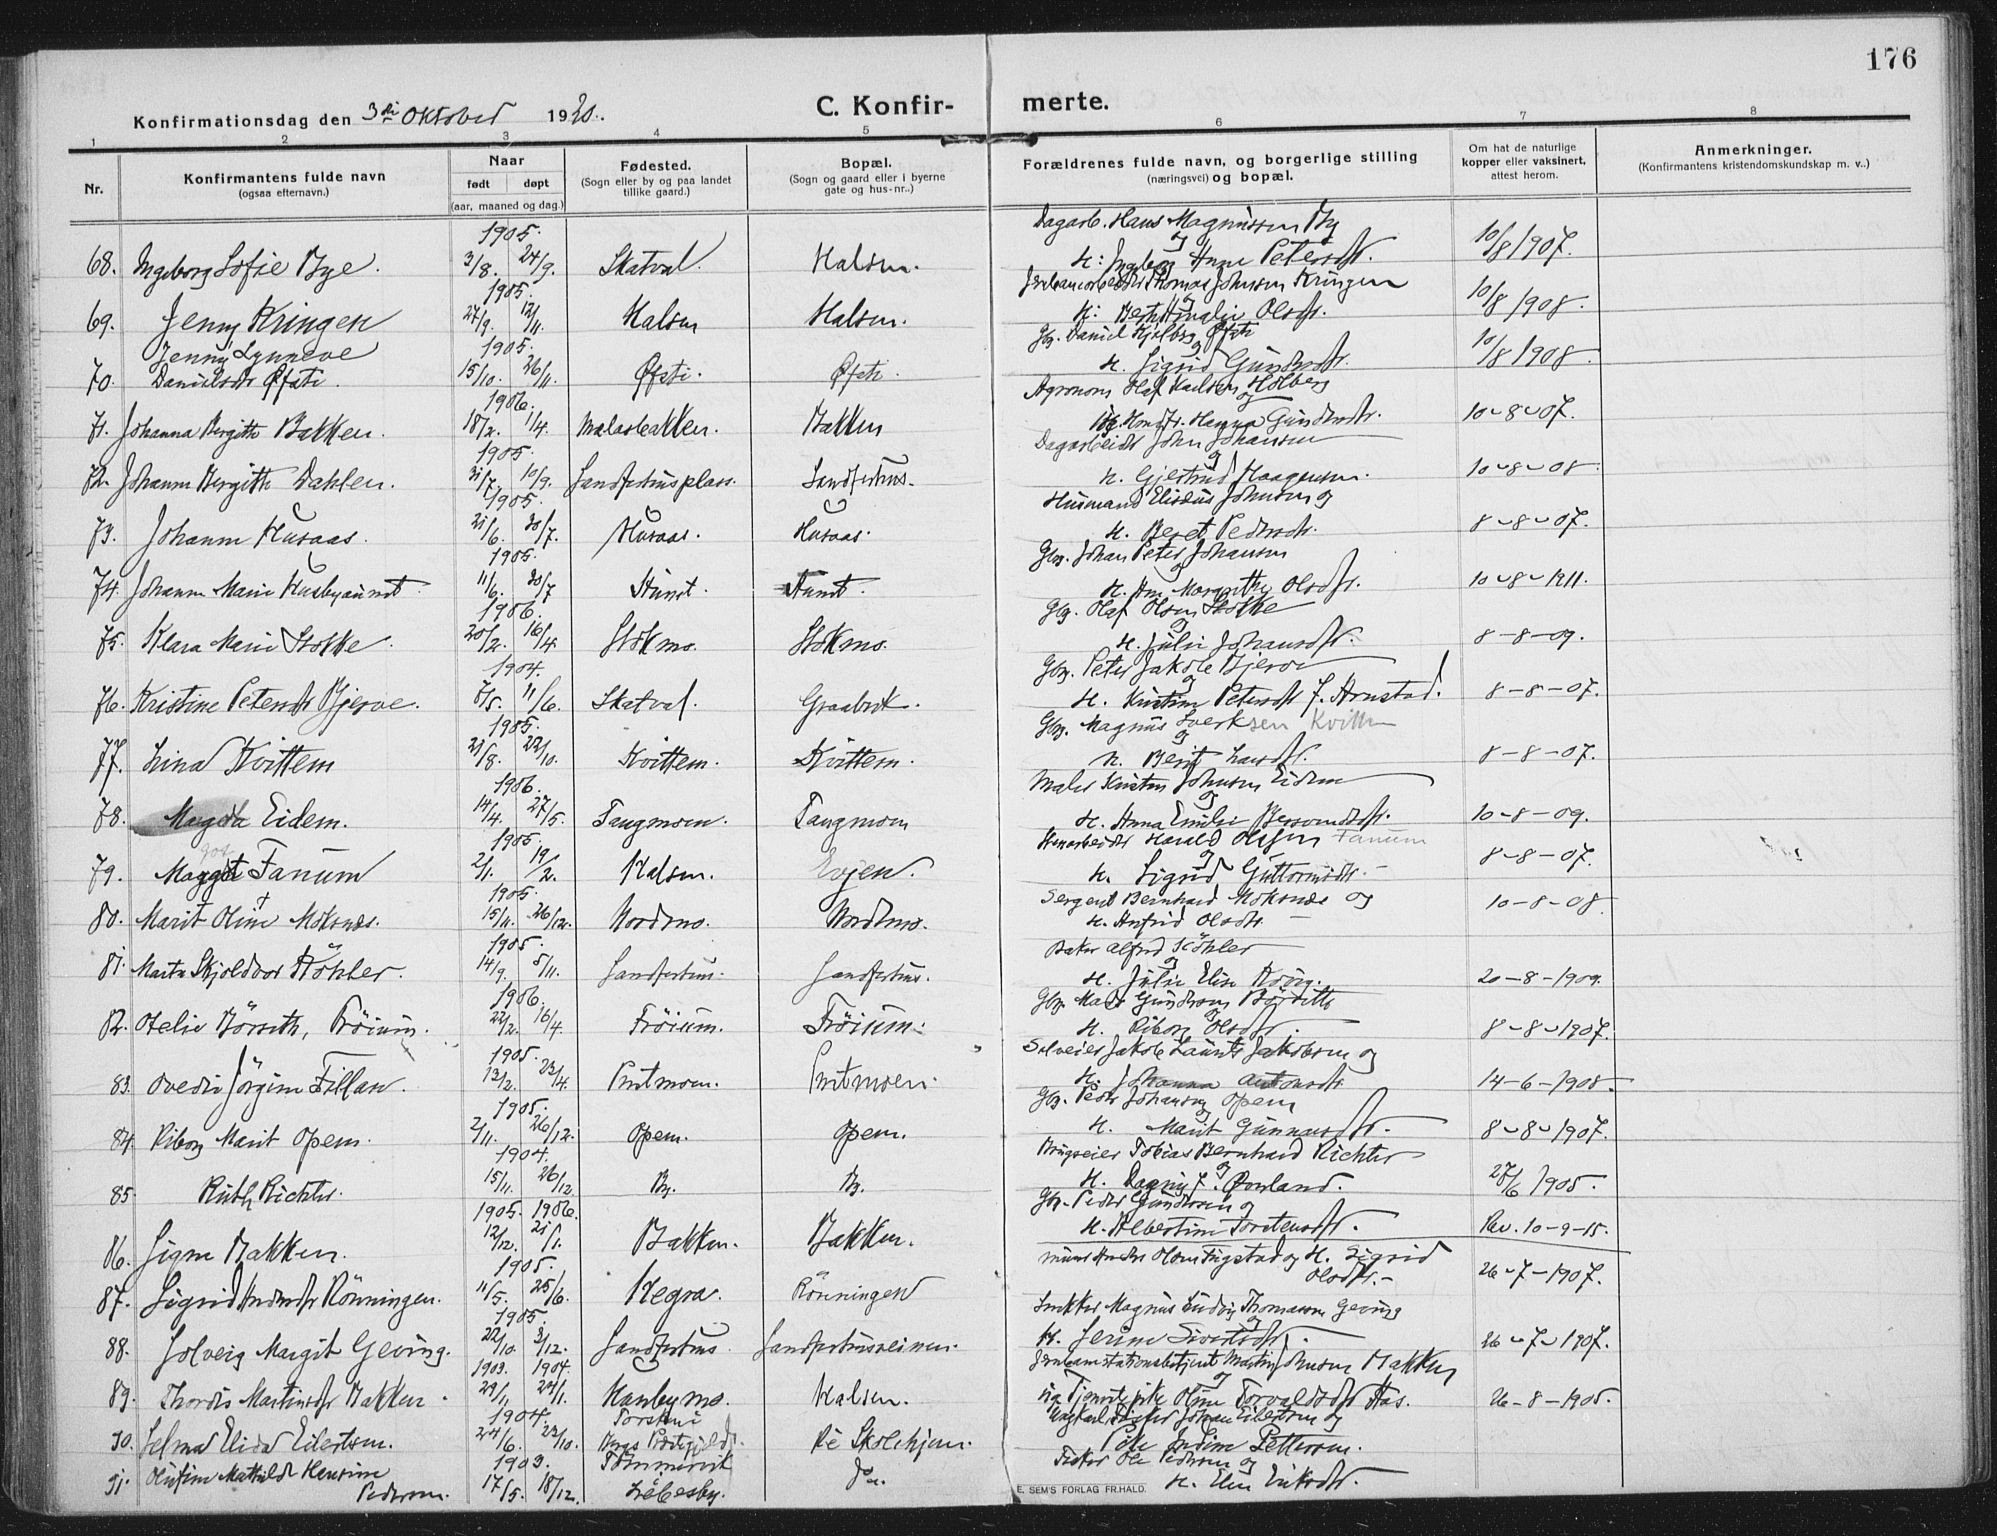 176
Konfirmationsdag den 3die Oktober 1920.
C. Konfir- merte.
1 2 3 4 5 6 7 8
Nr.
Konfirmantens fulde navn
(ogsaa efternavn.)
Naar
født døpt
(aar, maaned og dag.)
Fødested.
(Sogn eller by og paa landet
tillike gaard.)
Bopæl.
(Sogn og gaard eller i byerne
gate og hus-nr..)
Forældrenes fulde navn, og borgerlige stilling
(næringsvei) og bopæl.
Om hat de naturlige
kopper eller vaksinert,
attest herom.
Anmerkninger.
(Konfirmantens kristendomskundskap m. v..)
1905. Dagarb. Hans Magnussen By og
68. Ingeborg Sofie Bye. 3/8. 24/9. Skatval. Halsen. H: Ingeborg Anne Petersdtr. 10/8 1907.
1905. Thomas Johnsen Kringen
69. Jenny Kringen 27/9. 12/11. Halsen Halsen. H: Olsdtr. 10/8 1908.
Jenny Synneve 1905. Gbr. Daniel Øfsti og
70. Danielsdtr Øfsti. 15/10. 26/11. Øfsti. Øfsti. H. Sigrid Gundersdtr. 10/8 1908.
1906. Agronom Olaf Karlsen Holberg og
71. Johanna Bergitte Bakken. 18/2. 1/4. Malasbakken. Bakken Hanna Gundersdtr. 10-8-07.
1905. Dagarbeider John Johansen og
72. Johanna Bergitte Dahlen. 31/7. 10/9. Sandferhusplass. Sandferhus. H. Gjertrud Haagensen. 10-8-08
1905. Husmand Eliseus Johnsen og
73. Johanna Husaas. 21/6. 30/7. Husaas. Husaas. H. Beret Pedersdtr. 8-8-07.
1905. Gbr. Johan Peter Johansen og
74. Johanna Marie Husbyaunet. 11/6. 30/7 Aunet. Aunet. H. Margrethe Olsdtr. 10-8-1911.
1906. Gbr. Olaf Olsen Stokke og
75. Klara Marie Stokke. 20/2. 16/4. Stokmo. Stokmo. H. Julie Johansdtr. 8-8-09.
1904. Gbr. Peter Jakob Bjerve og
76. Kristine Petersdtr Bjerve. 8/5. 11/6. Skatval. Graabrek. H. Kristine Petersdtr f. Arnstad. 8-8-07.
1905. Gbr. Magnus Sverksen Kvittem og
77. Lina Kvittem 21/8. 22/10. Kvittem. Kvittem. H. Berit Larsdtr. 8-8-07.
1906. Maler Kristen Johnsen Eidem og
78. Magda Eidem. 14/4. 27/5. Tangmoen. Tangmoen H. Anna Emilie 10-8-09.
1905. Harald Olafsen Fanum og
79. Margot Fanum 2/1. 19/2. Halsen. Evjen. H. Sigrid Guttormsdtr. 8-8-07.
1905. Sergent Bernhard Moksnes og
80. Marit Oline Moksnes. 15/11. 26/12. Nordmo. Nordmo. H. Anfrid Olsdtr. 10-8-08
1905. Baker Alfred Köhler og
81. Marta Skjoldvor Köhler. 14/9. 5/11. Sandferhus. Sandferhus. H. Julie Elise 20-8-1909.
1906. Gbr. Mads Gunderssen Börseth og
82. Otelie Börseth, Fröium. 22/2. 16/4. Fröium. Fröium. H. Riborg Olsdtr. 8-8-1907.
1905. Selveier Jakob Laurits Jakobsen og
83. Ovedie Jörgine Fillan. 13/2. 23/4. Prestmoen. Prestmoen. H. Johanna Antonsdtr 14-6-1908.
1905. Gbr. Peder Johansen Opem og
84. Riborg Marit Opem. 2/11. 26/12. Opem. Opem. H. Marit Gunnarsdtr. 8-8-1907.
1904. Brugseier Tobias Bernhard Richter og
85. Ruth Richter. 15/11. 26/12. By. By. H. Dagny f. 27/6 1905.
1905. 1906. Gbr. Peder Gundersen og
86. Signe Bakken. 12/12. 21/1. Bakken. Bakken. H. Albertine Torstensdtr. Rev. 10-9-15.
1905. Olsen og H. Sigrid Olsdtr.
87. Sigrid Andersdtr Rönningen. 11/5. 25/6. Hegra. Rönningen 26-7-1907.
1905. Snekker Magnus Ludvig Thomassen Geving og
88. Solveig Margit Geving. 22/10. 3/12. Sandferhus. H. Jerine Sivertsdtr. 26-7-1907.
1903. 1904. Jernbanestationsbetjent Martin Johnsen Bakken og
89. Thordis Martinsdtr Bakken. 29/11. 24/1. Husbymo. Halsen. Oline Torvaldsdtr Aas. 26-8-1905.
1904. Johan Eilertsen og
90. Selma Elida Eilertsen. 24/6. 23/10. Ré Skolehjem. Pike Indine Pettersen.
1903. Fisker Ole Pedersen og
91. Olufine Mathilde Hensine Pedersen. 17/5. 18/12. Lebesby. do. H. Elen Eriksdtr.
E. SEM'S FORLAG FR.HALD.